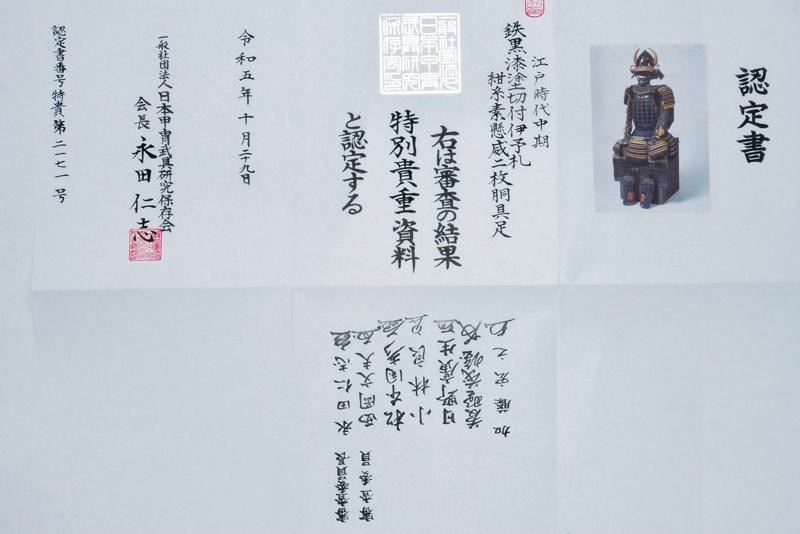 認定書
江戸時代中期
鉄黒漆塗切付伊予札
紺糸素懸威二枚胴具足
右は審査の結果
特別貴重資料
と認定する
令和五年十月二十九日
一般社団法人日本甲冑武具研究保存会
会長 永田仁志
認定書番号特貴第二一七一号
審査委員長 永田仁志
審査委員 西岡文夫
小林
日野
加藤宏之